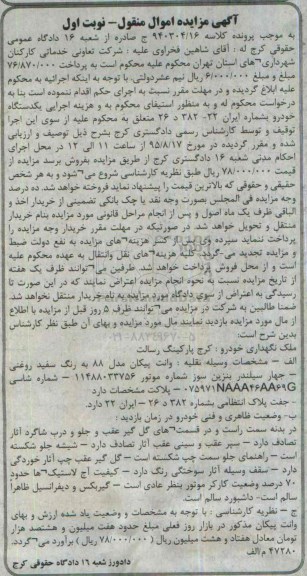 آگهی مزایده اموال منقول- نوبت اول
به موجب پرونده کلاسه ۹۴۰۳۰۴/۱۶ ج صادره از شعبه ۱۶ دادگاه عمومی
حقوقی کرج له : آقای شاهین فخراوی علیه : شرکت تعاونی خدماتی کارکنان
شهرداری¬های استان تهران محکوم علیه محکوم است به پرداخت ۷۶/۸۷۰/۰۰۰
مبلغ و مبلغ ۶/۰۰۰/۰۰۰ ریال نیم عشردولتی. با توجه به اینکه اجرائیه به محکوم
علیه ابلاغ گردیده و در مهلت مقرر نسبت به اجرای حکم اقدام ننموده است بنا به
درخواست محکوم له و به منظور استیفای محکوم به و هزینه اجرایی یکدستگاه
خودرو بشماره ایران ۲۲- ۳۸۲ د ۲۶ متعلق به محکوم علیه از سوی این اجرا
توقیف و توسط کارشناس رسمی دادگستری کرج بشرح ذیل توصیف و ارزیابی
شده و مقرر گردیده در مورخ ۹۵/۸/۱۷ از ساعت ۱۱ الی ۱۲ در محل اجرای
احکام مدنی شعبه ۱۶ دادگستری کرج از طریق مزایده بفروش برسد مزایده از
قیمت ۷۸/۰۰۰/۰۰۰ ریال طبق نظریه کارشناسی شروع می¬شود و به هر شخص
حقیقی و حقوقی که بالاترین قیمت را پیشنهاد نماید فروخته خواهد شد. ده درصد
وجه مزایده فی المجلس بصورت وجه نقد یا چک بانکی تضمینی از خریدار اخذ و
الباقی ظرف یک ماه اصول و پس از انجام مراحل قانونی مورد مزایده بنام خریدار
منتقل و تحویل خواهد شد. در صورتیکه در مهلت مقرر خریدار وجه مزایده را
پرداخت ننماید سپرده وی پس از کسر هزینه¬های مزایده به نفع دولت ضبط
و مزایده تجدید می¬گردد. کلیه هزینه¬های نقل وانتقال به عهده محکوم علیه
است و از محل فروش پرداخت خواهد شد. طرفین می¬توانند ظرف یک هفته
از تاریخ مزایده نسبت به نحوه انجام مزایده اعتراض نمایند که در این صورت تا
رسیدگی به اعتراض از سوی دادگاه مورد مزایده به نام خریدار منتقل نخواهد شد.
ضمنا طالبین به شرکت در مزایده می¬توانند ظرف ۵ روز قبل از مزایده با اطلاع
از مال مورد مزایده بازدید نمایند مال مورد مزایده و بهای آن طبق نظر کارشناس
بدین شرح است:
ملک نگهداری خودرو : کرج پارکینگ رسالت
الف - مشخصات وسیله نقلیه : وانت پیکان مدل ۸۸ به رنگ سفید روغنی
- چهار سیلندر بنزین سوز شماره موتور ۱۱۴۸۸۰۳۳۷۵۶ - شماره شاسی
- پلاک مشخصات دارد.
- جفت پلاک انتظامی بشماره ۳۸۲ د ۲۶ - ایران ۲۲ دارد.
ب- وضعیت ظاهری و فنی خودرو در زمان بازدید :
در بدنه سمت راست و در قسمت¬های گل گیر عقب و جلو و درب شاگرد آثار
تصادف دارد - سپر عقب و سینی عقب آثار تصادف دارد - شیشه جلو شکسته
است - راهنمای جلو سمت چپ شکسته است - گل گیر عقب چپ آثار خوردگی
دارد - سقف وسیله آثار سوختگی رنگ دارد - کیفیت آج لاستیک¬ها حدود
۷۰ درصد وضعیت کارکر موتور بنظر عادی است - گیربکس و دیفرانسیل ظاهراً
سالم است- داشبورد سالم است.
ج - نظریه کارشناسی : با توجه به مشخصات و وضعیت یاد شده ارزش و بهای
وانت پیکان مذکور در بازار روز فعلی مبلغ حدود هفت میلیون و هشتصد هزار
تومان معادل هفتاد و هشت میلیون ریال ( ۷۸/۰۰۰/۰۰۰ ریال ) برآورد می¬گردد.
۴۷۲۸۰ م/الف
دادورز شعبه ۱۶ دادگاه حقوقی کرج